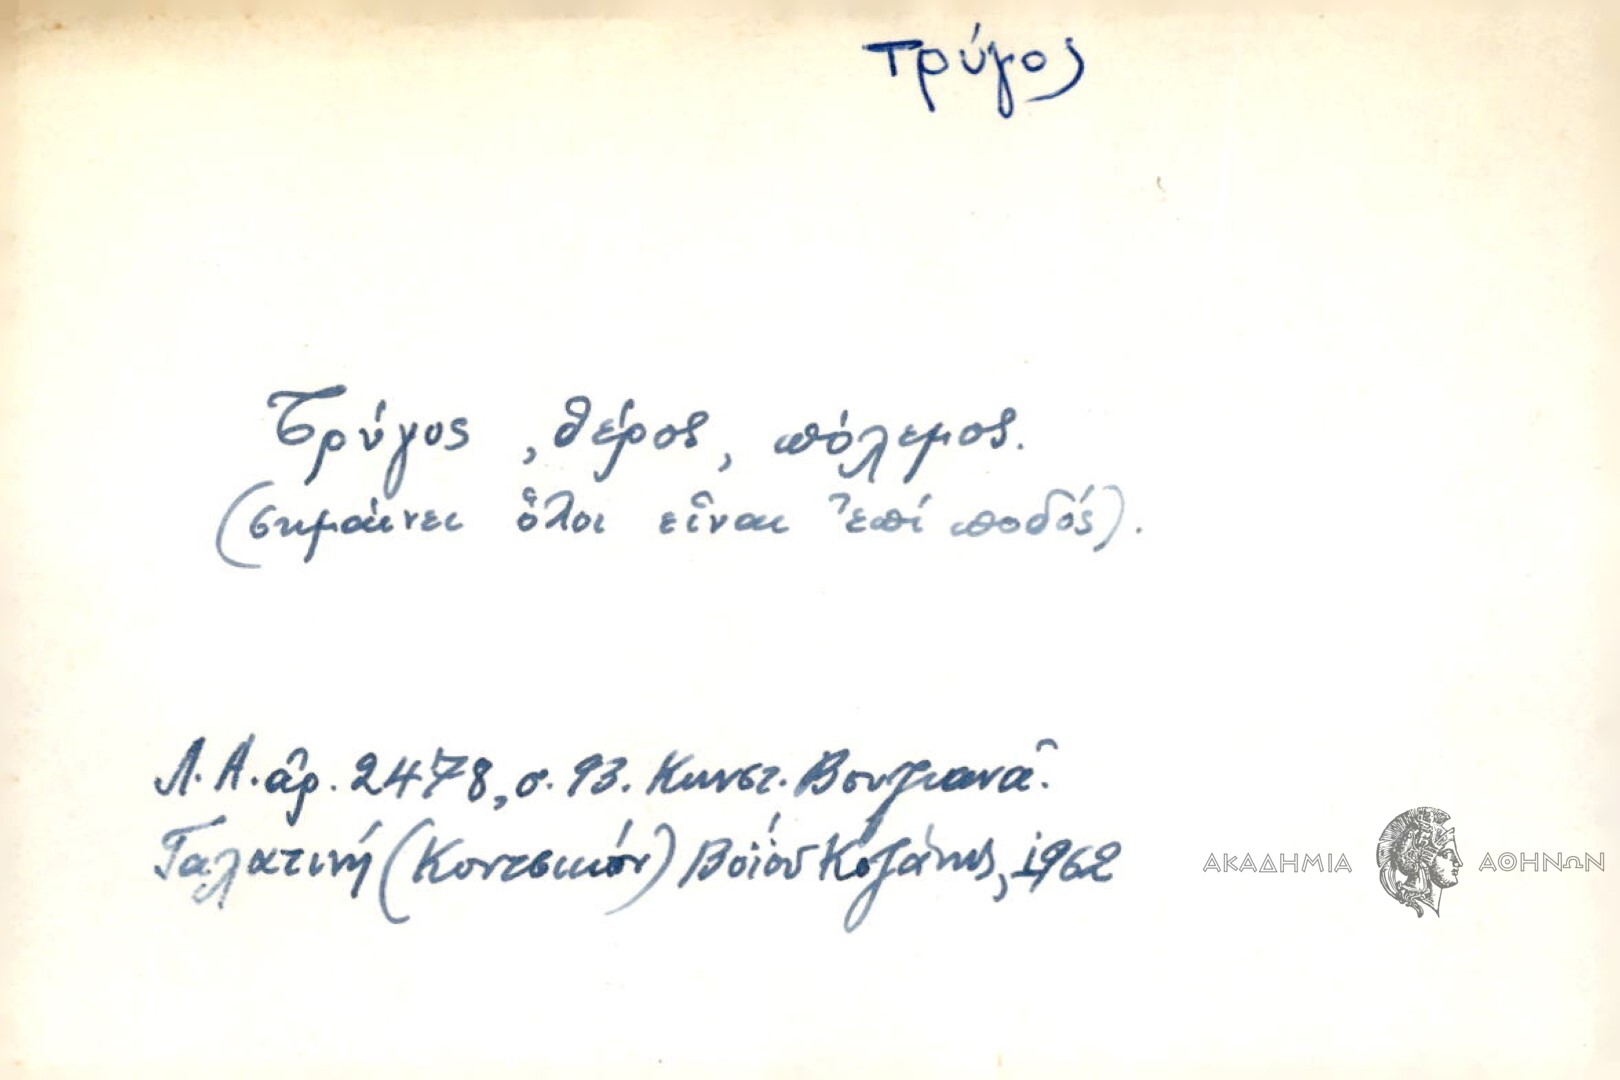 Τρύγος
Τρύγος, θέρος, πόλεμος.
(σημαίνει ὅλοι εἶναι ἐπί ποδός).
Λ.Α. ἀρ. 2478, σ. 93. Κωνστ.
Γαλατινή (Κοντσικόν) Βοΐου Κοζάνης, 1962
ΑΚΑΔΗΜΙΑ ΑΘΗΝΩΝ